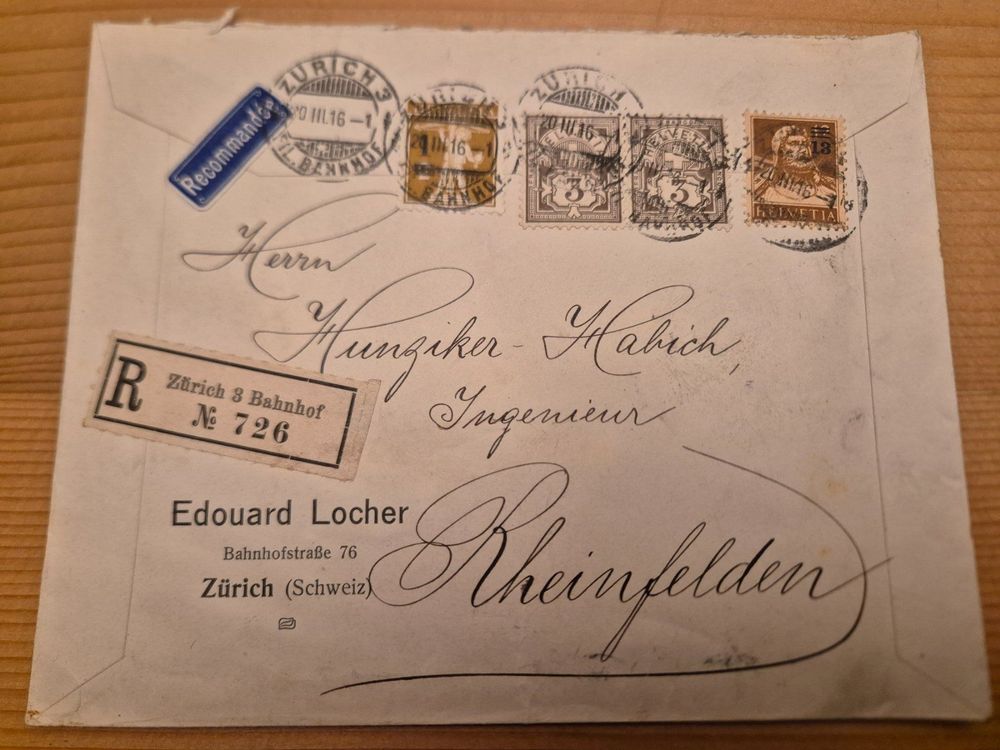 Recommandé
ZÜRICH 3
20 III.16-1
FIL. BAHNHOF
ZÜRICH
20 III.16-1
BAHNHOF
ZÜRICH
20 III.16
HELVETIA
3
HELVETIA
3
13
20 III.16
HELVETIA
Herrn
Hunziker-Habich,
Ingenieur
Rheinfelden
R
Zürich 3 Bahnhof
№ 726
Edouard Locher
Bahnhofstraße 76
Zürich (Schweiz)